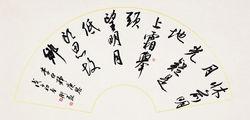 床前明
月
光疑是
地
上霜舉
頭
望明月
低
頭思故
鄉